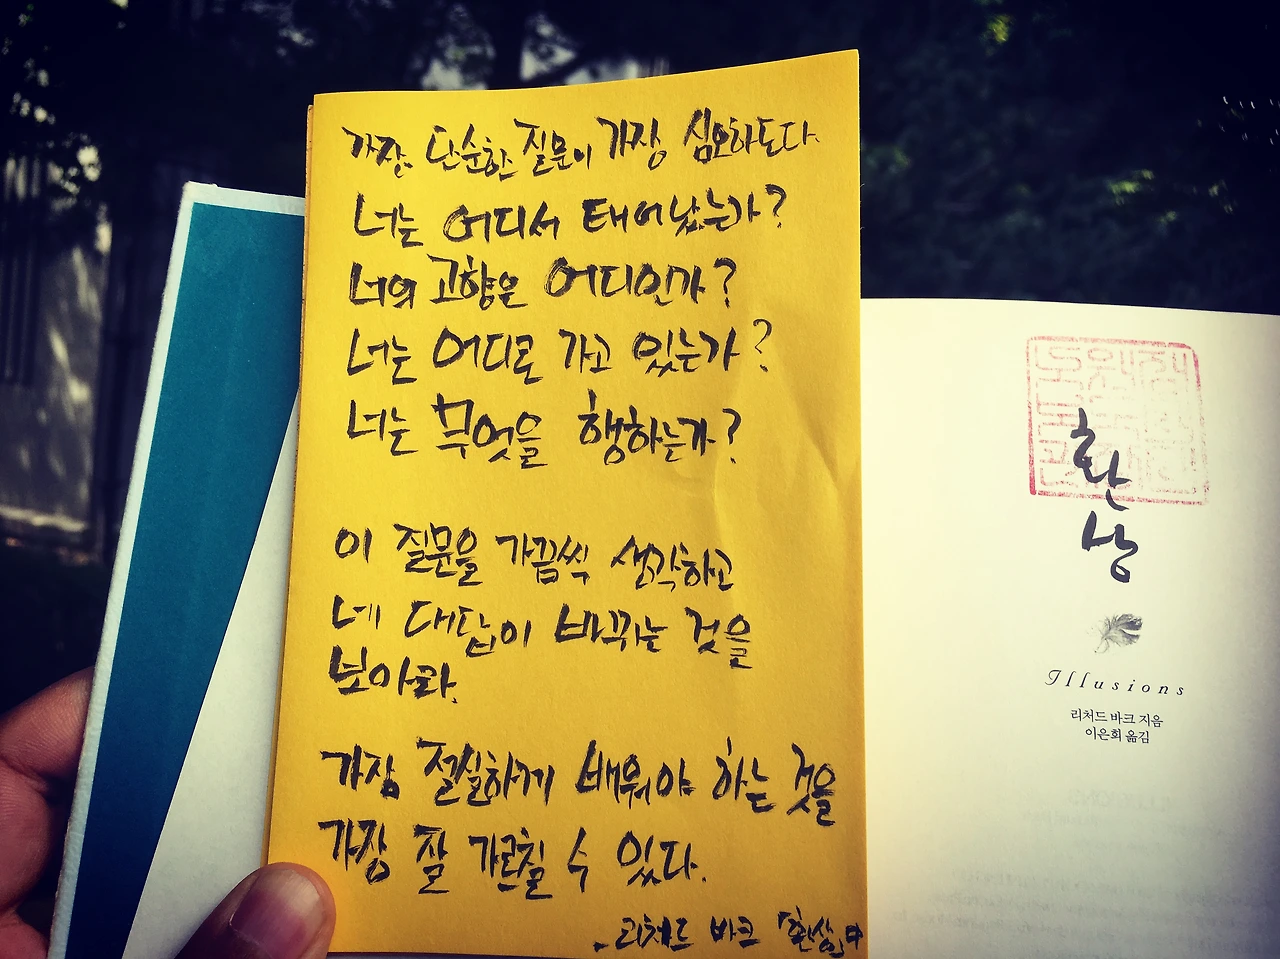 가장 단순한 질문이 가장 심오하도다.
너는 어디서 태어났는가?
너의 고향은 어디인가?
너는 어디로 가고 있는가?
너는 무엇을 행하는가?
이 질문을 가끔씩 생각하고
네 대답이 바뀌는 것을
보아라.
가장 절실하게 배워야 하는 것을
가장 잘 가르칠 수 있다.
리처드 바크 「환상」中
환상
Illusions
리처드 바크 지음
이은희 옮김